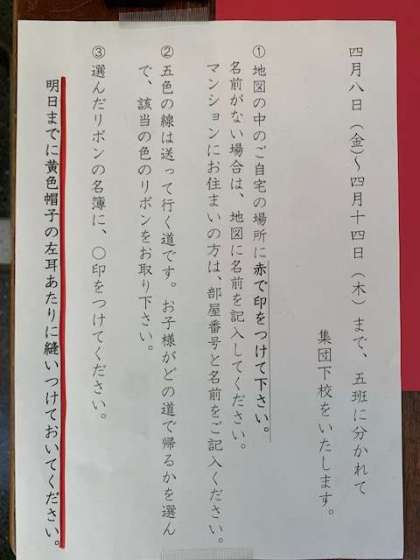 四月八日（金）～四月十四日（木）まで、五班に分かれて
集団下校をいたします。
①地図の中のご自宅の場所に赤で印をつけて下さい。
名前がない場合は、地図に名前を記入してください。
マンションにお住まいの方は、部屋番号と名前をご記入ください。
②五色の線は送って行く道です。お子様がどの道で帰るかを選ん
で、該当の色のリボンをお取り下さい。
③選んだリボンの名簿に、〇印をつけてください。
明日までに黄色帽子の左耳あたりに縫いつけておいてください。